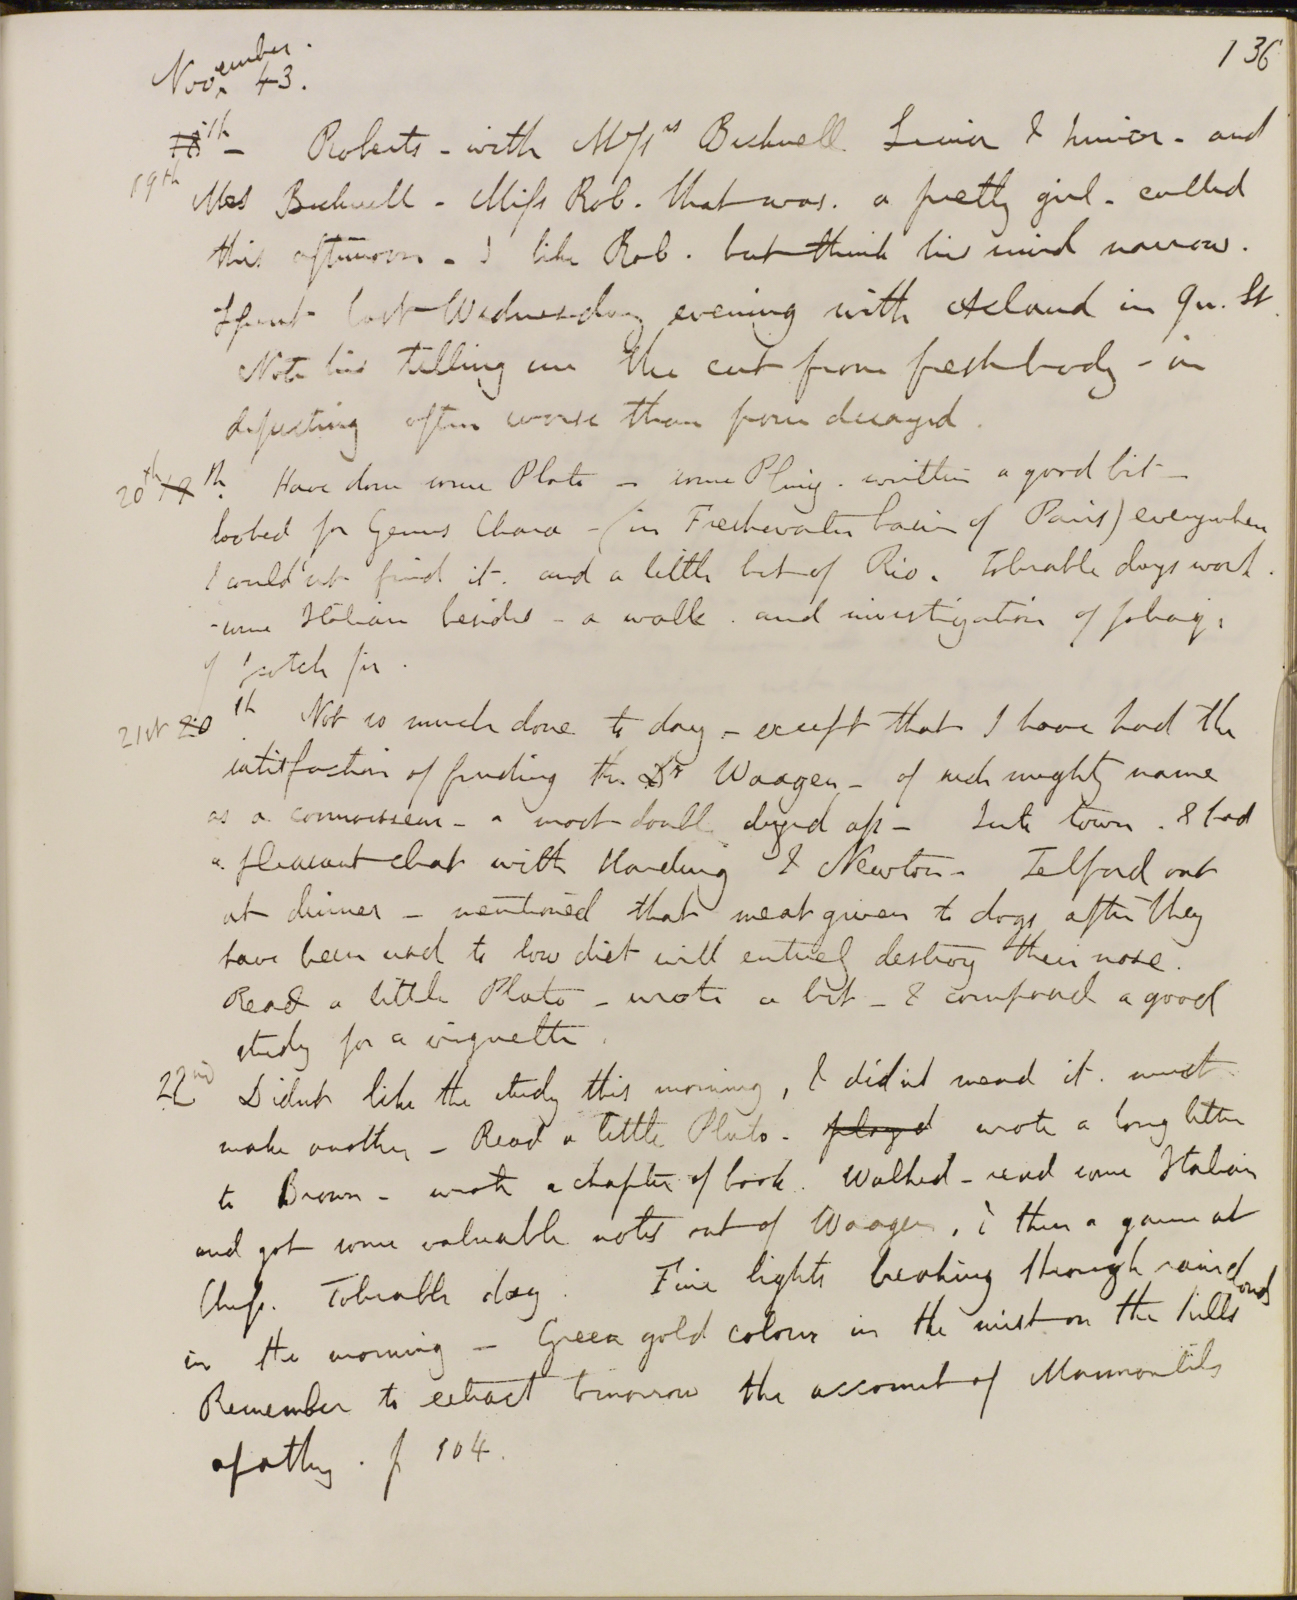 136
November. 43.
18th – Roberts – with Messrs Bicknell Senior & Junior – and
19th Mrs Bicknell – Miss Rob. that was. a pretty girl – called
this afternoon – I like Rob. but think his mind narrow.
Spent last Wednesday evening with Acland in Qu. St.
Note his telling me the cut from fresh body – in
dissecting often worse than from decayed.
20th 19th. Have done some Plato – some Pliny. written a good bit –
looked for Genus Chara – (in Freshwater basin of Paris) everywhere
I could'nt find it. and a little bit of Rio. Tolerable days work.
– some Italian besides – a walk. and investigation of foliage
of Scotch fir.
21st 20th Not so much done to day – except that I have had the
satisfaction of finding the Dr Waagen – of such mighty name
as a connoisseur – a most double dyed ass – Into town. & had
a pleasant chat with Harding & Newton – Telford out
at dinner – mentioned that meat given to dogs after they
have been used to low diet will entirely destroy their nose.
Read a little Plato – wrote a bit – & composed a good
study for a vignette.
22nd Didnt like the study this morning, & did'nt mend it. must
make another – Read a little Plato – played wrote a long letter
to Brown – wrote a chapter of book. Walked – read some Italian
and got some valuable notes out of Waagen, & then a game at
Chess. Tolerable day. Fine lights breaking through rainclouds
in the morning – Green gold colour in the mist on the hills
Remember to extract tomorrow the account of Marmontels
apathy. p 104.